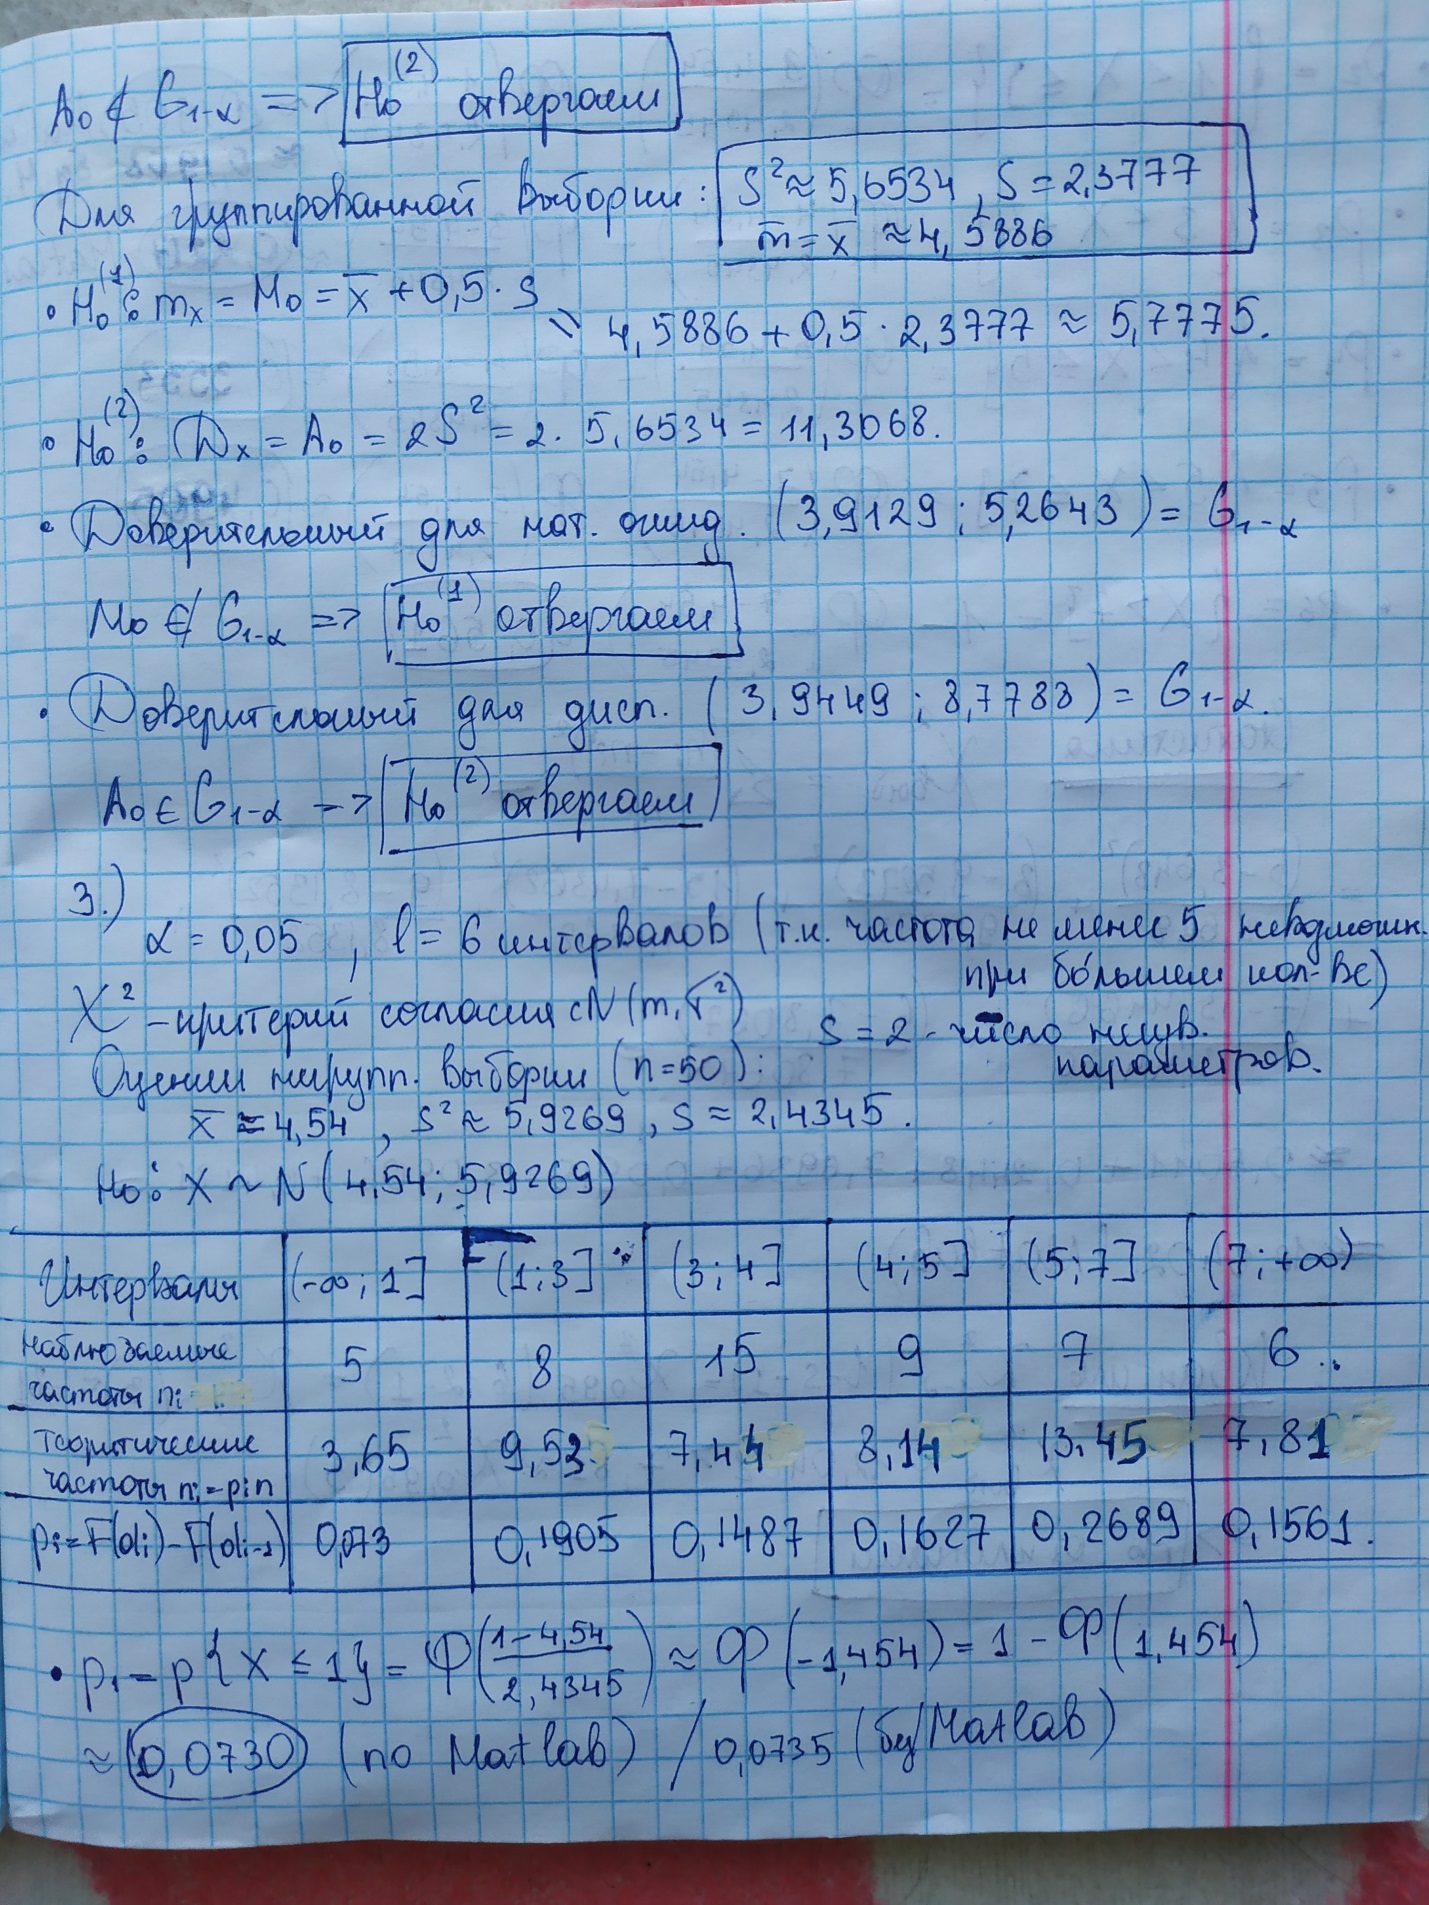 A₀ ∉ G₁₋α => H₀⁽²⁾ отвергаем
Для группированной выборки: S² ≈ 5,6534, S = 2,3777
m̄ = x̄ ≈ 4,5886
• H₀⁽¹⁾: mₓ = M₀ = x̄ + 0,5 · S
= 4,5886 + 0,5 · 2,3777 ≈ 5,7775.
• H₀⁽²⁾: Dₓ = A₀ = 2S² = 2 · 5,6534 = 11,3068.
• Доверительный для мат. ожид. (3,9129 ; 5,2643) = G₁₋α
M₀ ∉ G₁₋α => H₀⁽¹⁾ отвергаем
• Доверительный для дисп. (3,9449 ; 8,7783) = G₁₋α.
A₀ ∈ G₁₋α => H₀⁽²⁾ отвергаем
3.)
α = 0,05 , l = 6 интервалов (т.к. частота не менее 5 невозможн.
при бо́льшем кол-ве)
χ² – критерий согласия с N(m, σ²)
S = 2 – число неизв.
параметров.
Оценки негрупп. выборки (n=50):
x̄ ≈ 4,54 , S² ≈ 5,9269 , S ≈ 2,4345.
H₀: X ~ N(4,54; 5,9269)
Интервалы (-∞; 1] (1; 3] (3; 4] (4; 5] (5; 7] (7; +∞)
наблюдаемые
частоты nᵢ 5 8 15 9 7 6
теоритические
частоты nᵢ = pᵢn 3,65 9,53 7,44 8,14 13,45 7,81
pᵢ = F(αᵢ) - F(αᵢ₋₁) 0,073 0,1905 0,1487 0,1627 0,2689 0,1561.
• p₁ = p{X ≤ 1} = Φ((1 - 4,54)/2,4345) ≈ Φ(-1,454) = 1 - Φ(1,454)
≈ 0,0730 (по Matlab) / 0,0735 (без Matlab)